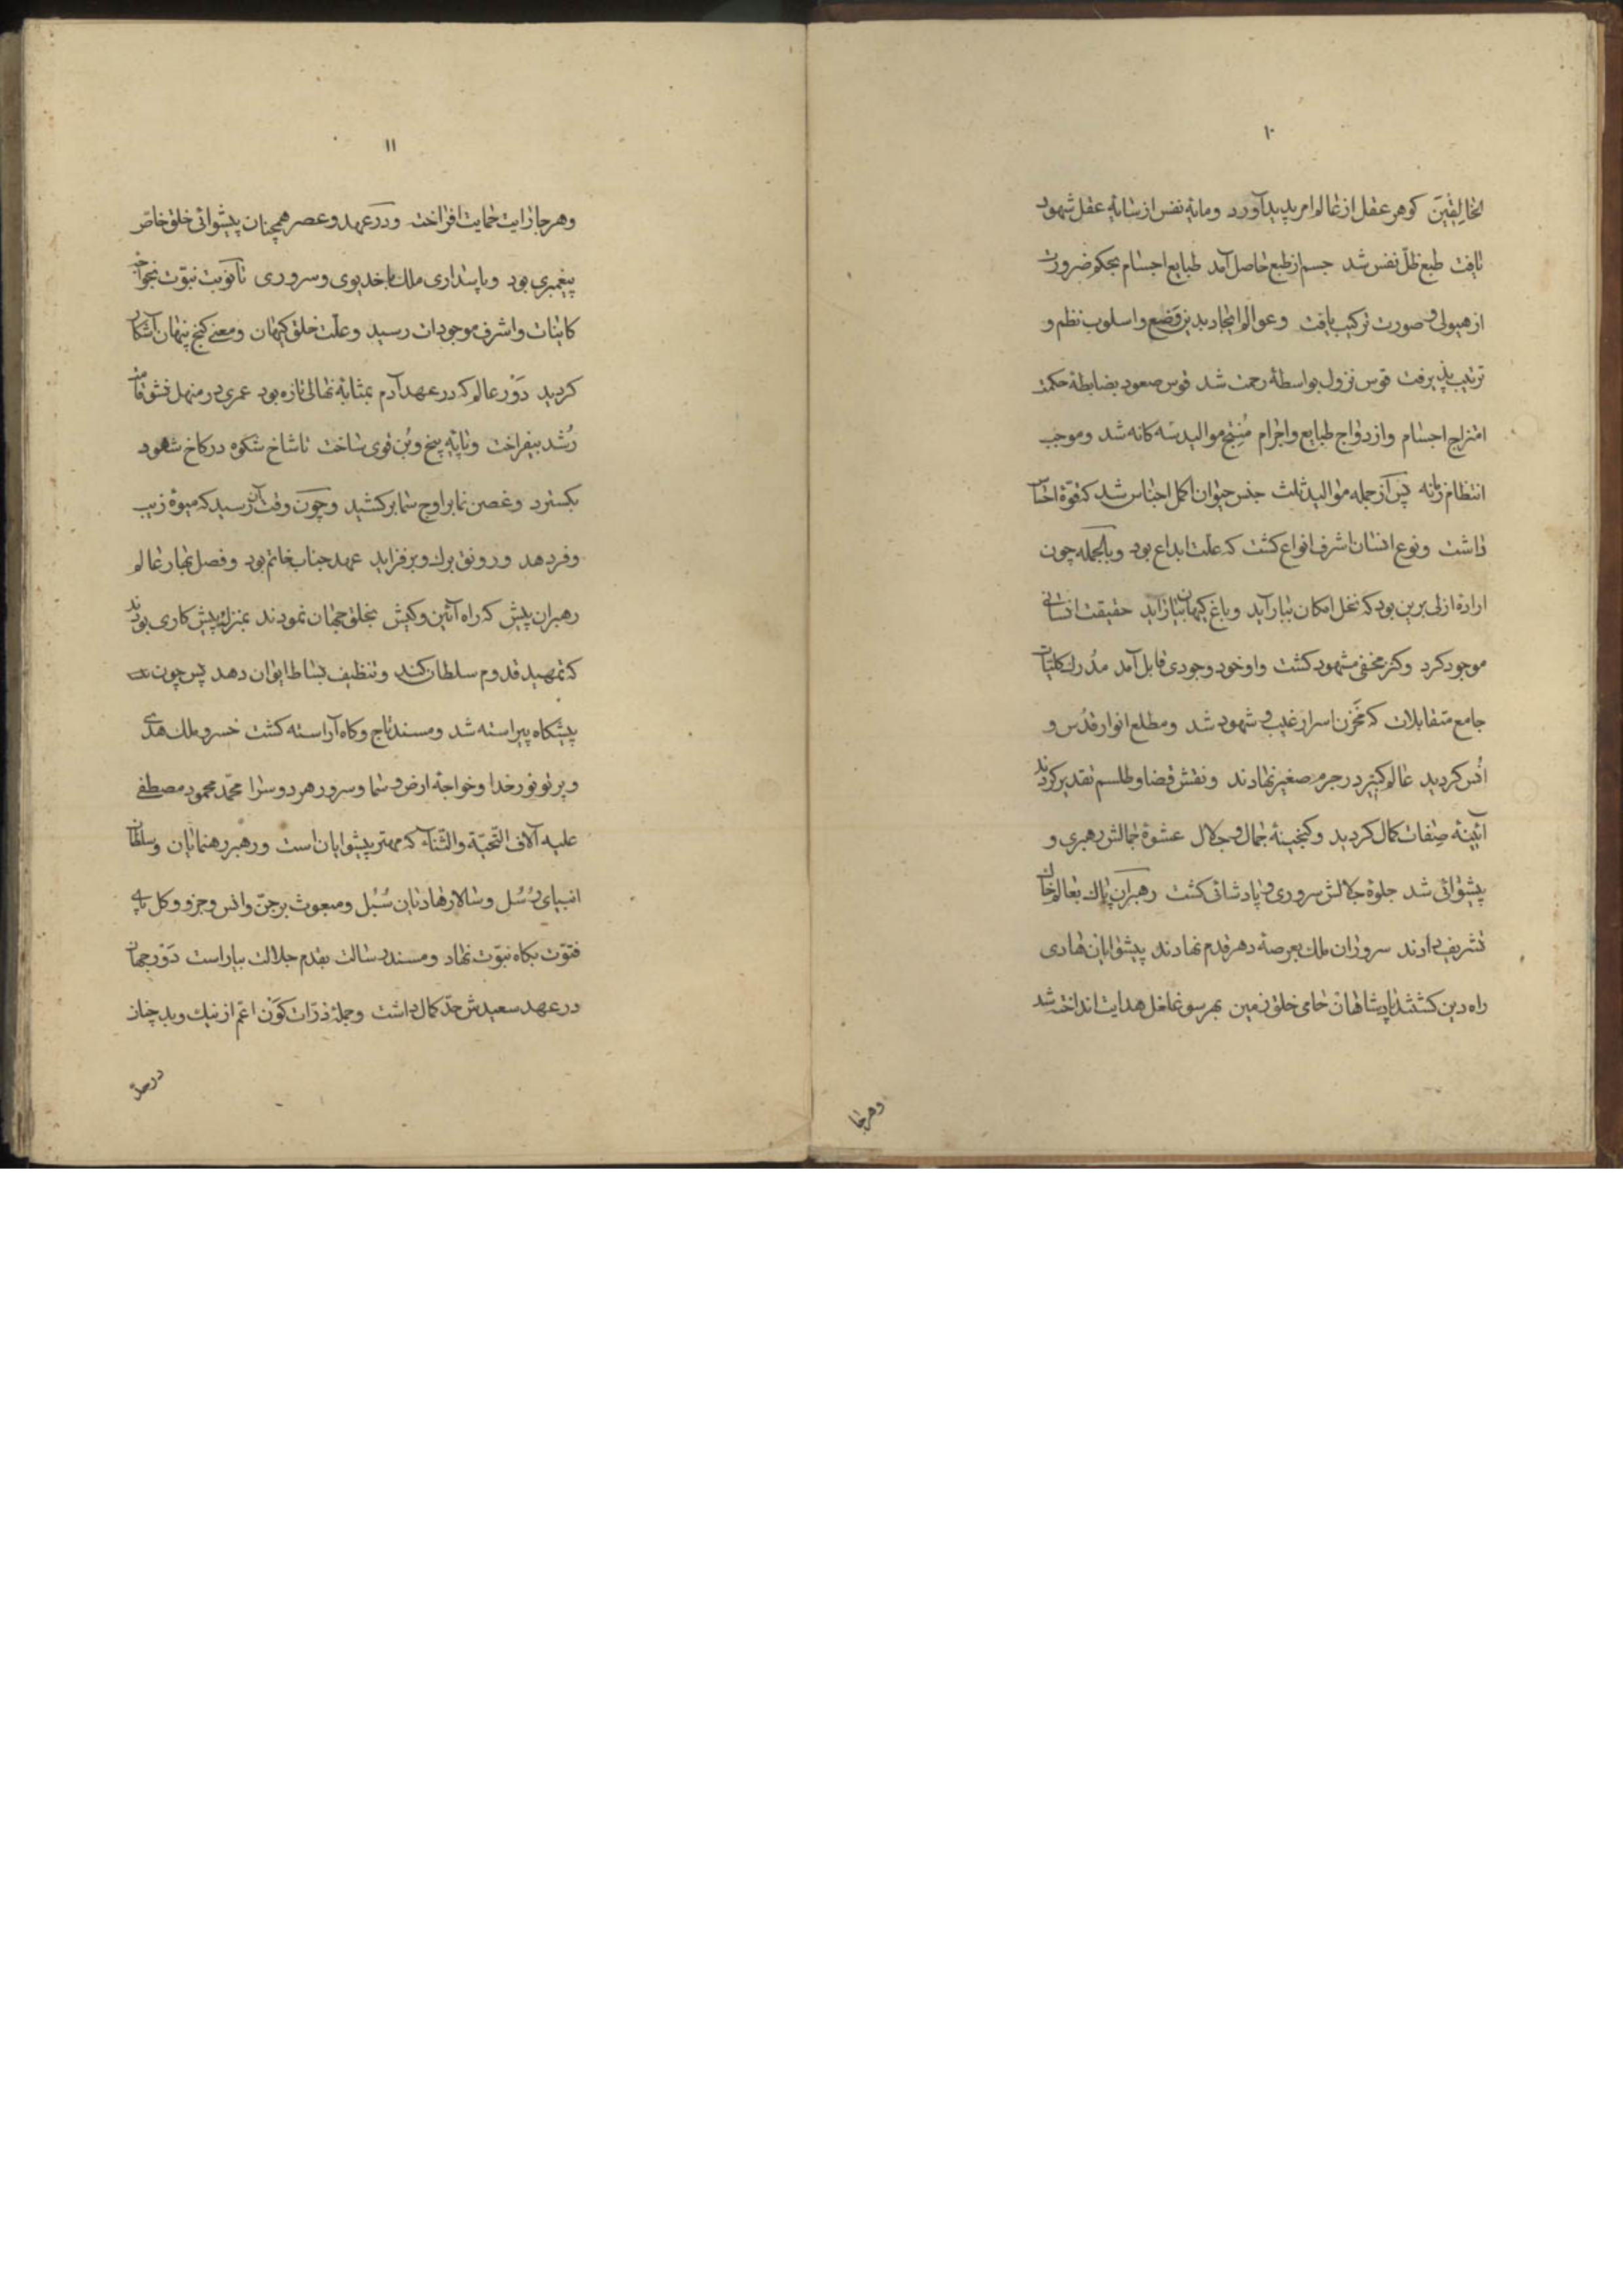 ۱۰
الخالِقِینَ کوهر عقل از عالم امر پدید آورد ومایهٔ نفس از سایهٔ عقل شهود
یافت طبع ظلّ نفس شد جسم از طبع حاصل آمد طبایع اجسام بحکم ضرورت
از هیولی و صورت ترکیب یافت وعوالم ایجاد بدین وَضع واسلوب نظم و
ترتیب پذیرفت قوس نزول بواسطهٔ رحمت شد قوس صعود بضابطهٔ حکمت
امتزاج اجسام وازدواج طبایع واجرام مُنتِج موالید سه کانه شد وموجب
انتظام زمانه پس از جمله موالید ثلث جنس حیوان اکمل اجناس شد که قوّهٔ احساس
داشت ونوع انسان اشرف انواع کشت که علّت ابداع بود وبالجمله چون
ارادهٔ ازلی برین بود که نخل امکان ببار آید وباغ کیهان بیاراید حقیقت انسانی
موجود کرد وکنز مخفی مشهود کشت واو خود وجودی قابل آمد مدُرك کلیات
جامع متقابلات که مخَزن اسرار غیب و شهود شد ومطلع انوار قدُس و
انُس کردید عالم کبیر در جرم صغیر نهادند ونقش قضا وطلسم تقدیر کردند
آئینهٔ صفات کمال کردید وکنجینهٔ جمال و جلال عشوهٔ جمالش رهبری و
پیشوائی شد جلوهٔ جلالش سروری و پادشائی کشت رهبران پاك بعالم خاك
تشریف دادند سروران ملك بعرصهٔ دهر قدم نهادند پیشوایان هادی
راه دین کشتند پادشاهان حامی خلق زمین بهر سو غلغل هدایت انداخته شد
وهرجا
۱۱
وهرجا رایت حمایت افراخت ودر عهد وعصر همچنان پیشوائی خلق خاصّ
پیغمبری بود وپاسداری ملك با خدیوی وسروری تا نوبت نبوّت بخواجهٔ
کاینات واشرف موجودات رسید وعلّت خلق کیهان ومعنی کنج پنهان آشکار
کردید دَوْر عالم که در عهد آدم بمثابهٔ نهالی تازه بود عمری در منهل نشو قامت
رُشد بیفراخت وپایهٔ بیخ وبُن قوی ساخت تا شاخ شکوه در کاخ شهود
بکسترد وغصن نما بر اوج سما برکشید وچون وقت آن رسید که میوهٔ زیب
وفر دهد ورونق برك وبر فزاید عهد جناب خاتم بود وفصل بهار عالم
رهبران پیش که راه آئین وکیش بخلق جهان نمودند بمنزلهٔ پیش کاری بودند
که تمهید قدوم سلطان کند وتنظیف بساط ایوان دهد پس چون
پیشکاه پیراسته شد ومسند تاج وکاه آراسته کشت خسرو ملك هدی
وپرتو نور خدا وخواجهٔ ارض و سما وسرور هر دو سرا محمّد محمود مصطفی
علیه آلاف التّحیّة والثّناء که مهتر پیشوایان است ورهبر رهنمایان وسلطان
انبیای رُسُل وسالار هادیان سُبُل ومبعوث بر جنّ وانس وجزو وکل پای
فتوّت بکاه نبوّت نهاد ومسند رسالت بقدم جلالت بیاراست دَوْر جهان
در عهد سعیدش حدّ کمال داشت وجملهٔ ذرّات کَوْن اعمّ از نیك وبد چنان